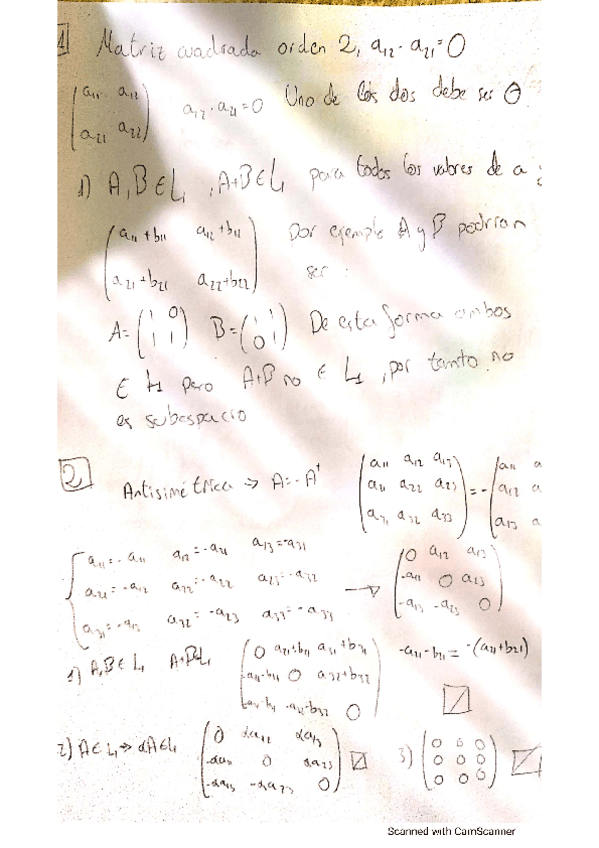 1 Matriz cuadrada orden 2, a12 · a21 = 0
(a11 a12
a21 a22) a12 · a21 = 0 Uno de los dos debe ser 0
1) A, B ∈ L1, A+B ∈ L1 para todos los valores de a
(a11+b11 a12+b11
a21+b21 a22+b22) Por ejemplo A y B podrían
ser:
A = (1 0
1 1) B = (1 1
0 1) De esta forma ambos
∈ L1 pero A+B no ∈ L1, por tanto no
es subespacio
2 Antisimétrica → A = -At
(a11 a12 a13
a21 a22 a23
a31 a32 a33) = -(a11
a12
a13
{a11 = -a11 a12 = -a21 a13 = -a31
a21 = -a12 a22 = -a22 a23 = -a32
a31 = -a13 a32 = -a23 a33 = -a33
→ (0 a12 a13
-a11 0 a23
-a13 -a23 0)
1) A, B ∈ L1 A+B ∈ L1
-a21-b21 = -(a21+b21)
2) A ∈ L1 → αA ∈ L1 (0 αa12 αa13
0 αa23
-αa13 -αa23 0)
3) (0 0 0
0 0 0
0 0 0)
Scanned with CamScanner